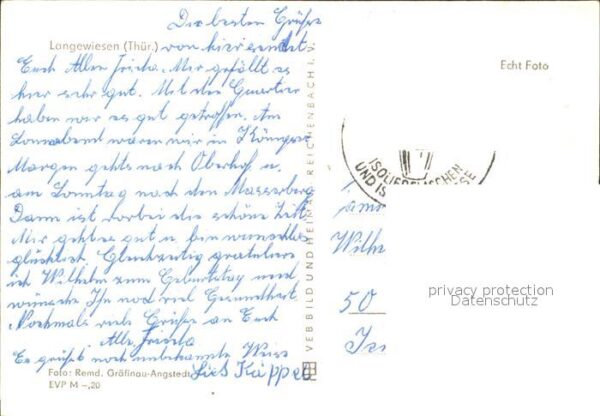 Die besten Grüße
Langewiesen (Thür.) von hier sendet
Euch Allen Frieda. Mir gefällt es
hier sehr gut. Mit den Quartier
haben wir es gut getroffen. Am
Sonnabend waren wir in
Morgen gehts nach Oberhof u.
am Sonntag nach den Masserberg
Dann ist vorbei die schöne Zeit.
Mir geht es gut u. bin wunschlos
glücklich. Gleichzeitig gratuliere
ich Wilhelm zum Geburtstag und
wünsche Ihn noch viel Gesundheit.
Nochmals viele Grüße an Euch
Alle, Frieda
Es grüßt noch unbekannte Weise
Foto: Remd. Gräfinau-Angstedt
EVP M –,20
VEB BILD UND HEIMAT REICHENBACH I. V.
Echt Foto
ISOLIERFLASCHEN
UND IS
Wilh
50
privacy protection
Datenschutz